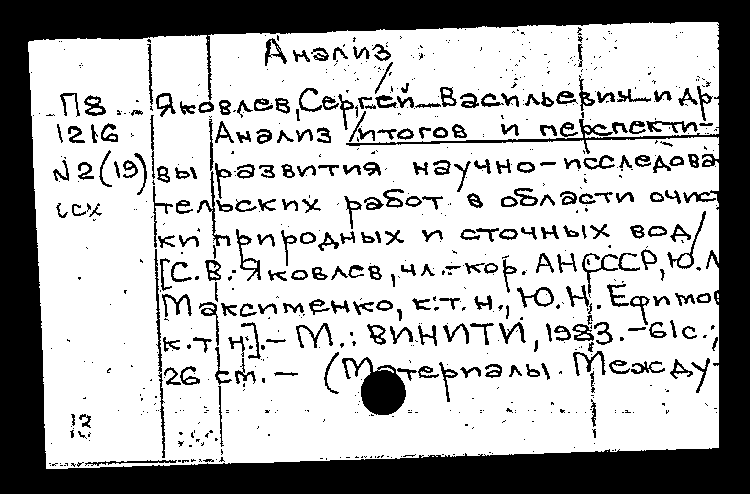 Анализ
П8 Яковлев, Сергей Васильевич и др
1216 Анализ итогов и перспекти-
N2(19) вы развития научно-исследова
ссх тельских работ в области очист
ки природных и сточных вод/
[С.В. Яковлев, чл.-кор. АН СССР, Ю.Л
Максименко, к.т.н., Ю.Н. Ефимов
к.т.н.].- М.: ВИНИТИ, 1983.-61с.;
26 см. - (Материалы Между-
13